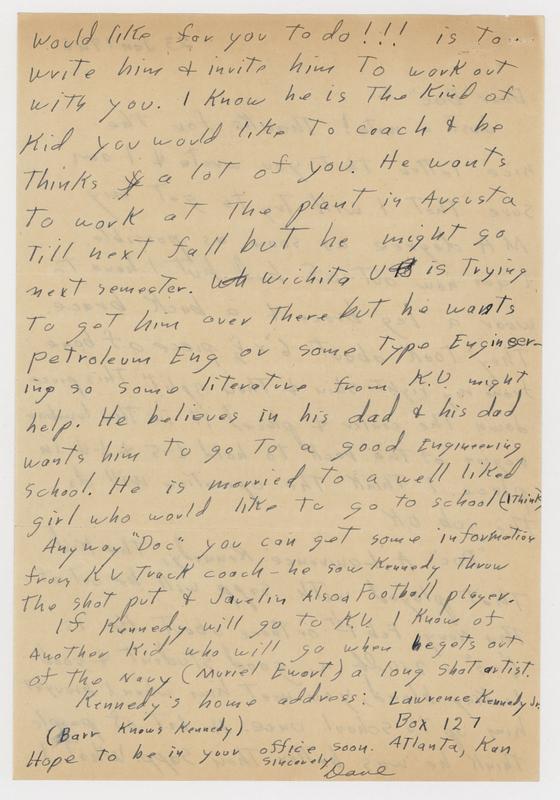 would like for you to do!!! is to...
write him & invite him To work out
with you. I know he is The Kind of
Kid you would like To coach & be
Thinks a lot of you. He wants
To work at The plant in Augusta
Till next fall but he might go
next semester. Wichita U is Trying
To get him over There but he wants
petroleum Eng or some Type Engineer-
ing so some literature from K.U. might
help. He believes in his dad & his dad
wants him To go To a good Engineering
School. He is married to a well liked
girl who would like to go to school (I Think)
Anyway "Doc" you can get some information
from KU Track coach - he saw Kennedy Throw
The shot put & Javelin Also a Football player.
If Kennedy will go to K.U. I Know of
Another Kid who will go when he gets out
of The Navy (Muriel Ewort) a long shot artist.
Kennedy's home address: Lawrence Kennedy Jr.
Box 127
(Barr Knows Kennedy)
Atlanta, Kan
Hope to be in your office soon.
Sincerely
Dave